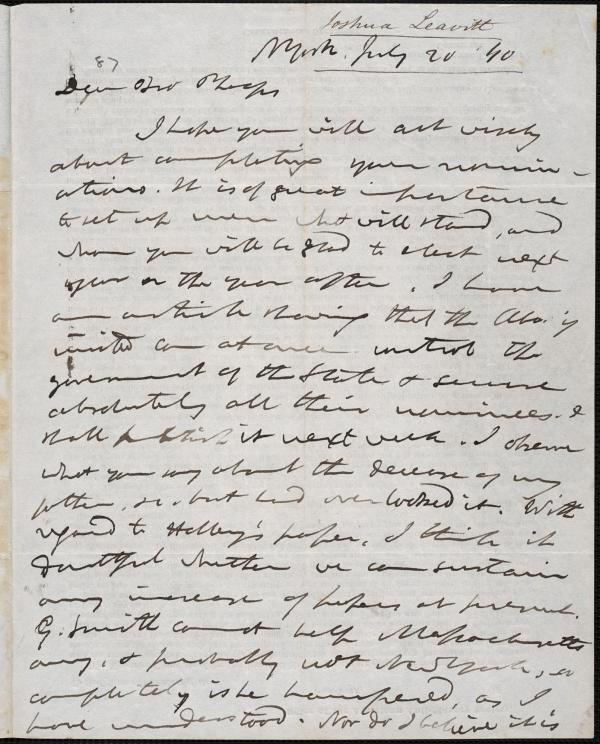 Joshua Leavitt
NYork. July 20 '40
87
Dear Bro Phelps
I hope you will act wisely
about completing your nomin-
ations. It is of great importance
to set up men who will stand, and
whom you will be glad to elect next
year or the year after. I have
an article showing that the Abo. if
united can at once control the
government of the State & secure
absolutely all their nominees. I
shall publish it next week. I observe
what you say about the decease of my
father, but had overlooked it. With
regard to Holley's paper, I think it
doubtful whether we can sustain
any increase of papers at present.
G. Smith cannot help Massachusetts
any, & probably not New York, so
completely is he hampered, as I
have understood. Nor do I believe it is